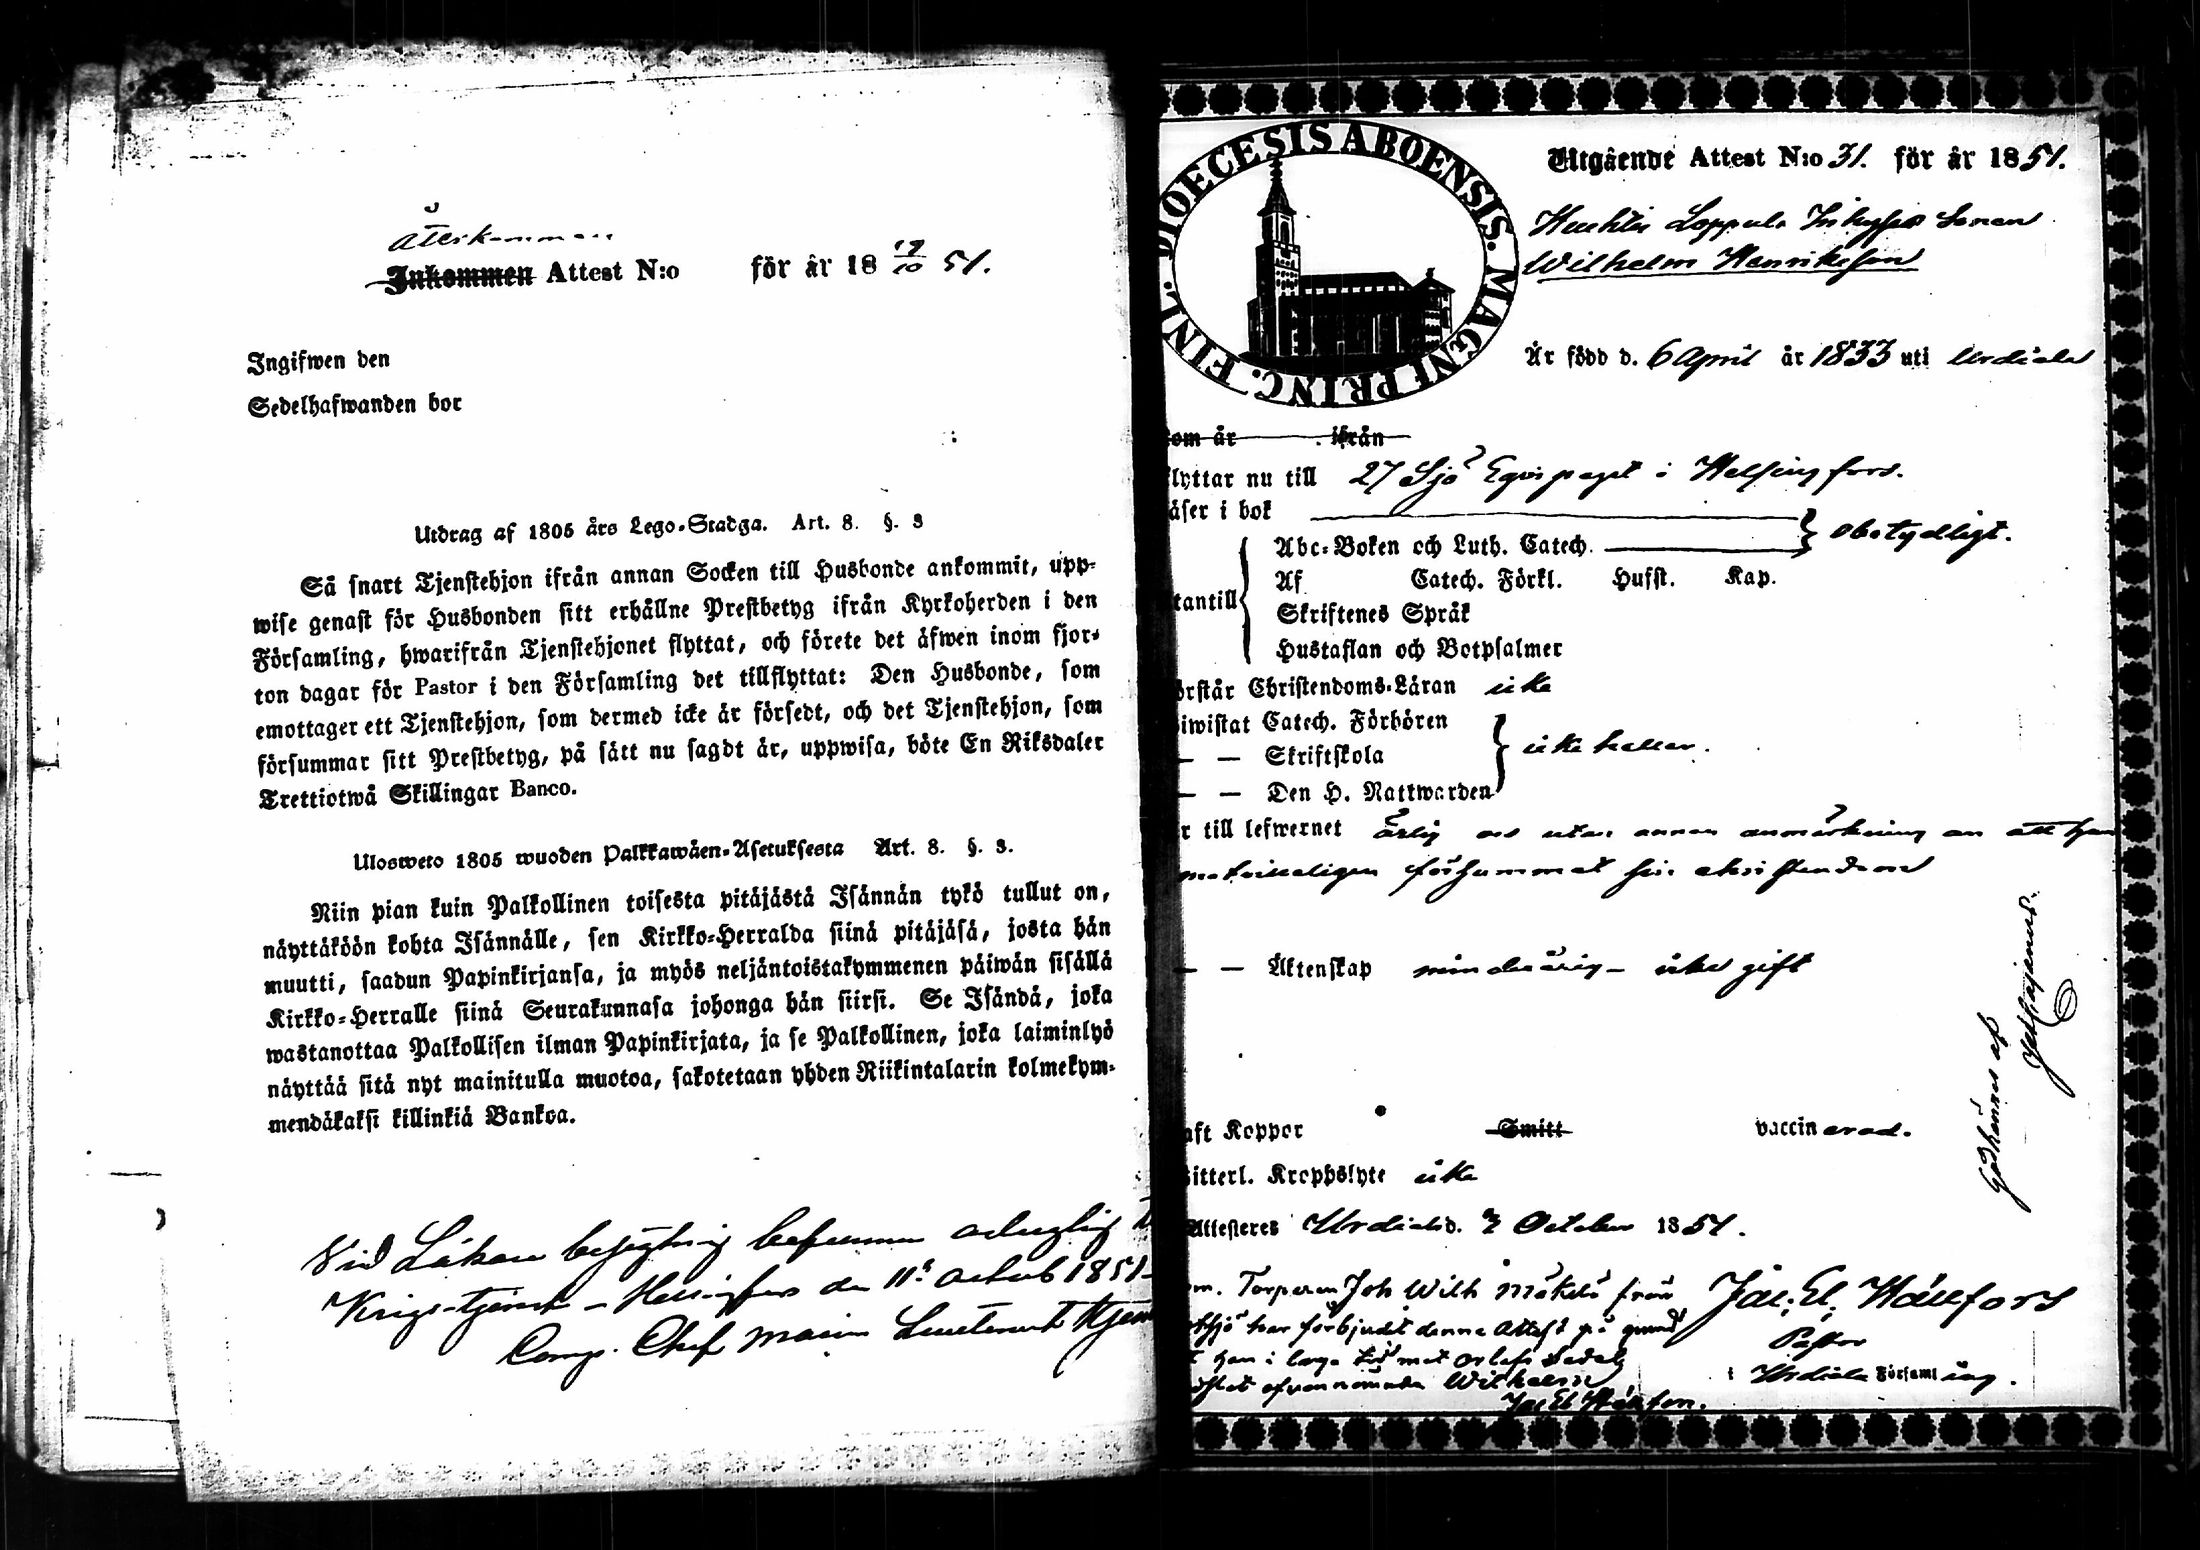 Återkommen
Inkommen Attest N:o för år 18 19/10 51.
Ingifwen den
Sedelhafwanden bor
Utdrag af 1805 års Lego-Stadga. Art. 8. §. 3
Så snart Tjenstehjon ifrån annan Socken till Husbonde ankommit, upp-
wise genast för Husbonden sitt erhållne Prestbetyg ifrån Kyrkoherden i den
Församling, hwarifrån Tjenstehjonet flyttat, och förete det äfwen inom fjor-
ton dagar för Pastor i den Församling det tillflyttat: Den Husbonde, som
emottager ett Tjenstehjon, som dermed icke är försedt, och det Tjenstehjon, som
försummar sitt Prestbetyg, på sätt nu sagdt är, uppwisa, böte En Riksdaler
Trettiotwå Skillingar Banco.
Ulosweto 1805 wuoden Palkkawäen-Asetuksesta Art. 8. §. 3.
Niin pian kuin Palkollinen toisesta pitäjästä Isännän tykö tullut on,
näyttäköön kohta Isännälle, sen Kirkko-Herralda siinä pitäjäsä, josta hän
muutti, saadun Papinkirjansa, ja myös neljäntoistakymmenen päiwän sisällä
Kirkko-Herralle siinä Seurakunnasa johonga hän siirsi. Se Isändä, joka
wastanottaa Palkollisen ilman Papinkirjata, ja se Palkollinen, joka laiminlyö
näyttää sitä nyt mainitulla muotoa, sakotetaan yhden Riikintalarin kolmekym-
mendäkaksi killinkiä Bankoa.
Vid Läkare besigtning befunnen oduglig
Krigstjenst - Helsingfors den 11 Octob 1851
Comp. Chef Lieutenant
DIOECESIS ABOENSIS. MAGNI PRINC. FINL.
Utgående Attest N:o 31. för år 1851.
Loppula Sonen
Wilhelm Henriksson
Är född d. 6 April år 1833 uti Urdiala
om år ifrån
lyttar nu till 27 Sjö Equipaget i Helsingfors.
äser i bok
Abc-Boken och Luth. Catech. obetydligt.
Af Catech. Förkl. Husst. Kap.
tantill
Skriftenes Språk
Hustaflan och Botpsalmer
örstår Christendoms-Läran icke
iwistat Catech. Förhören
— — Skriftskola icke heller.
— — Den H. Nattwarden
r till lefwernet ärlig och utan annan anmärkning än att han
försummat sin christendom
— — Äktenskap minderårig - icke gift
aft Koppor Smitt vaccinerad.
itterl. Kropphslyte icke
Attesteres Urdiala d. 7 October 1851.
Joh Wilh Mäkelä från
har förbjudit denna Attest på grund
han i laga tid med
ofvannämnda Wilhelm
Jac. El. Hällfors
Pastor
i Urdiala Församling.
Godkännes af